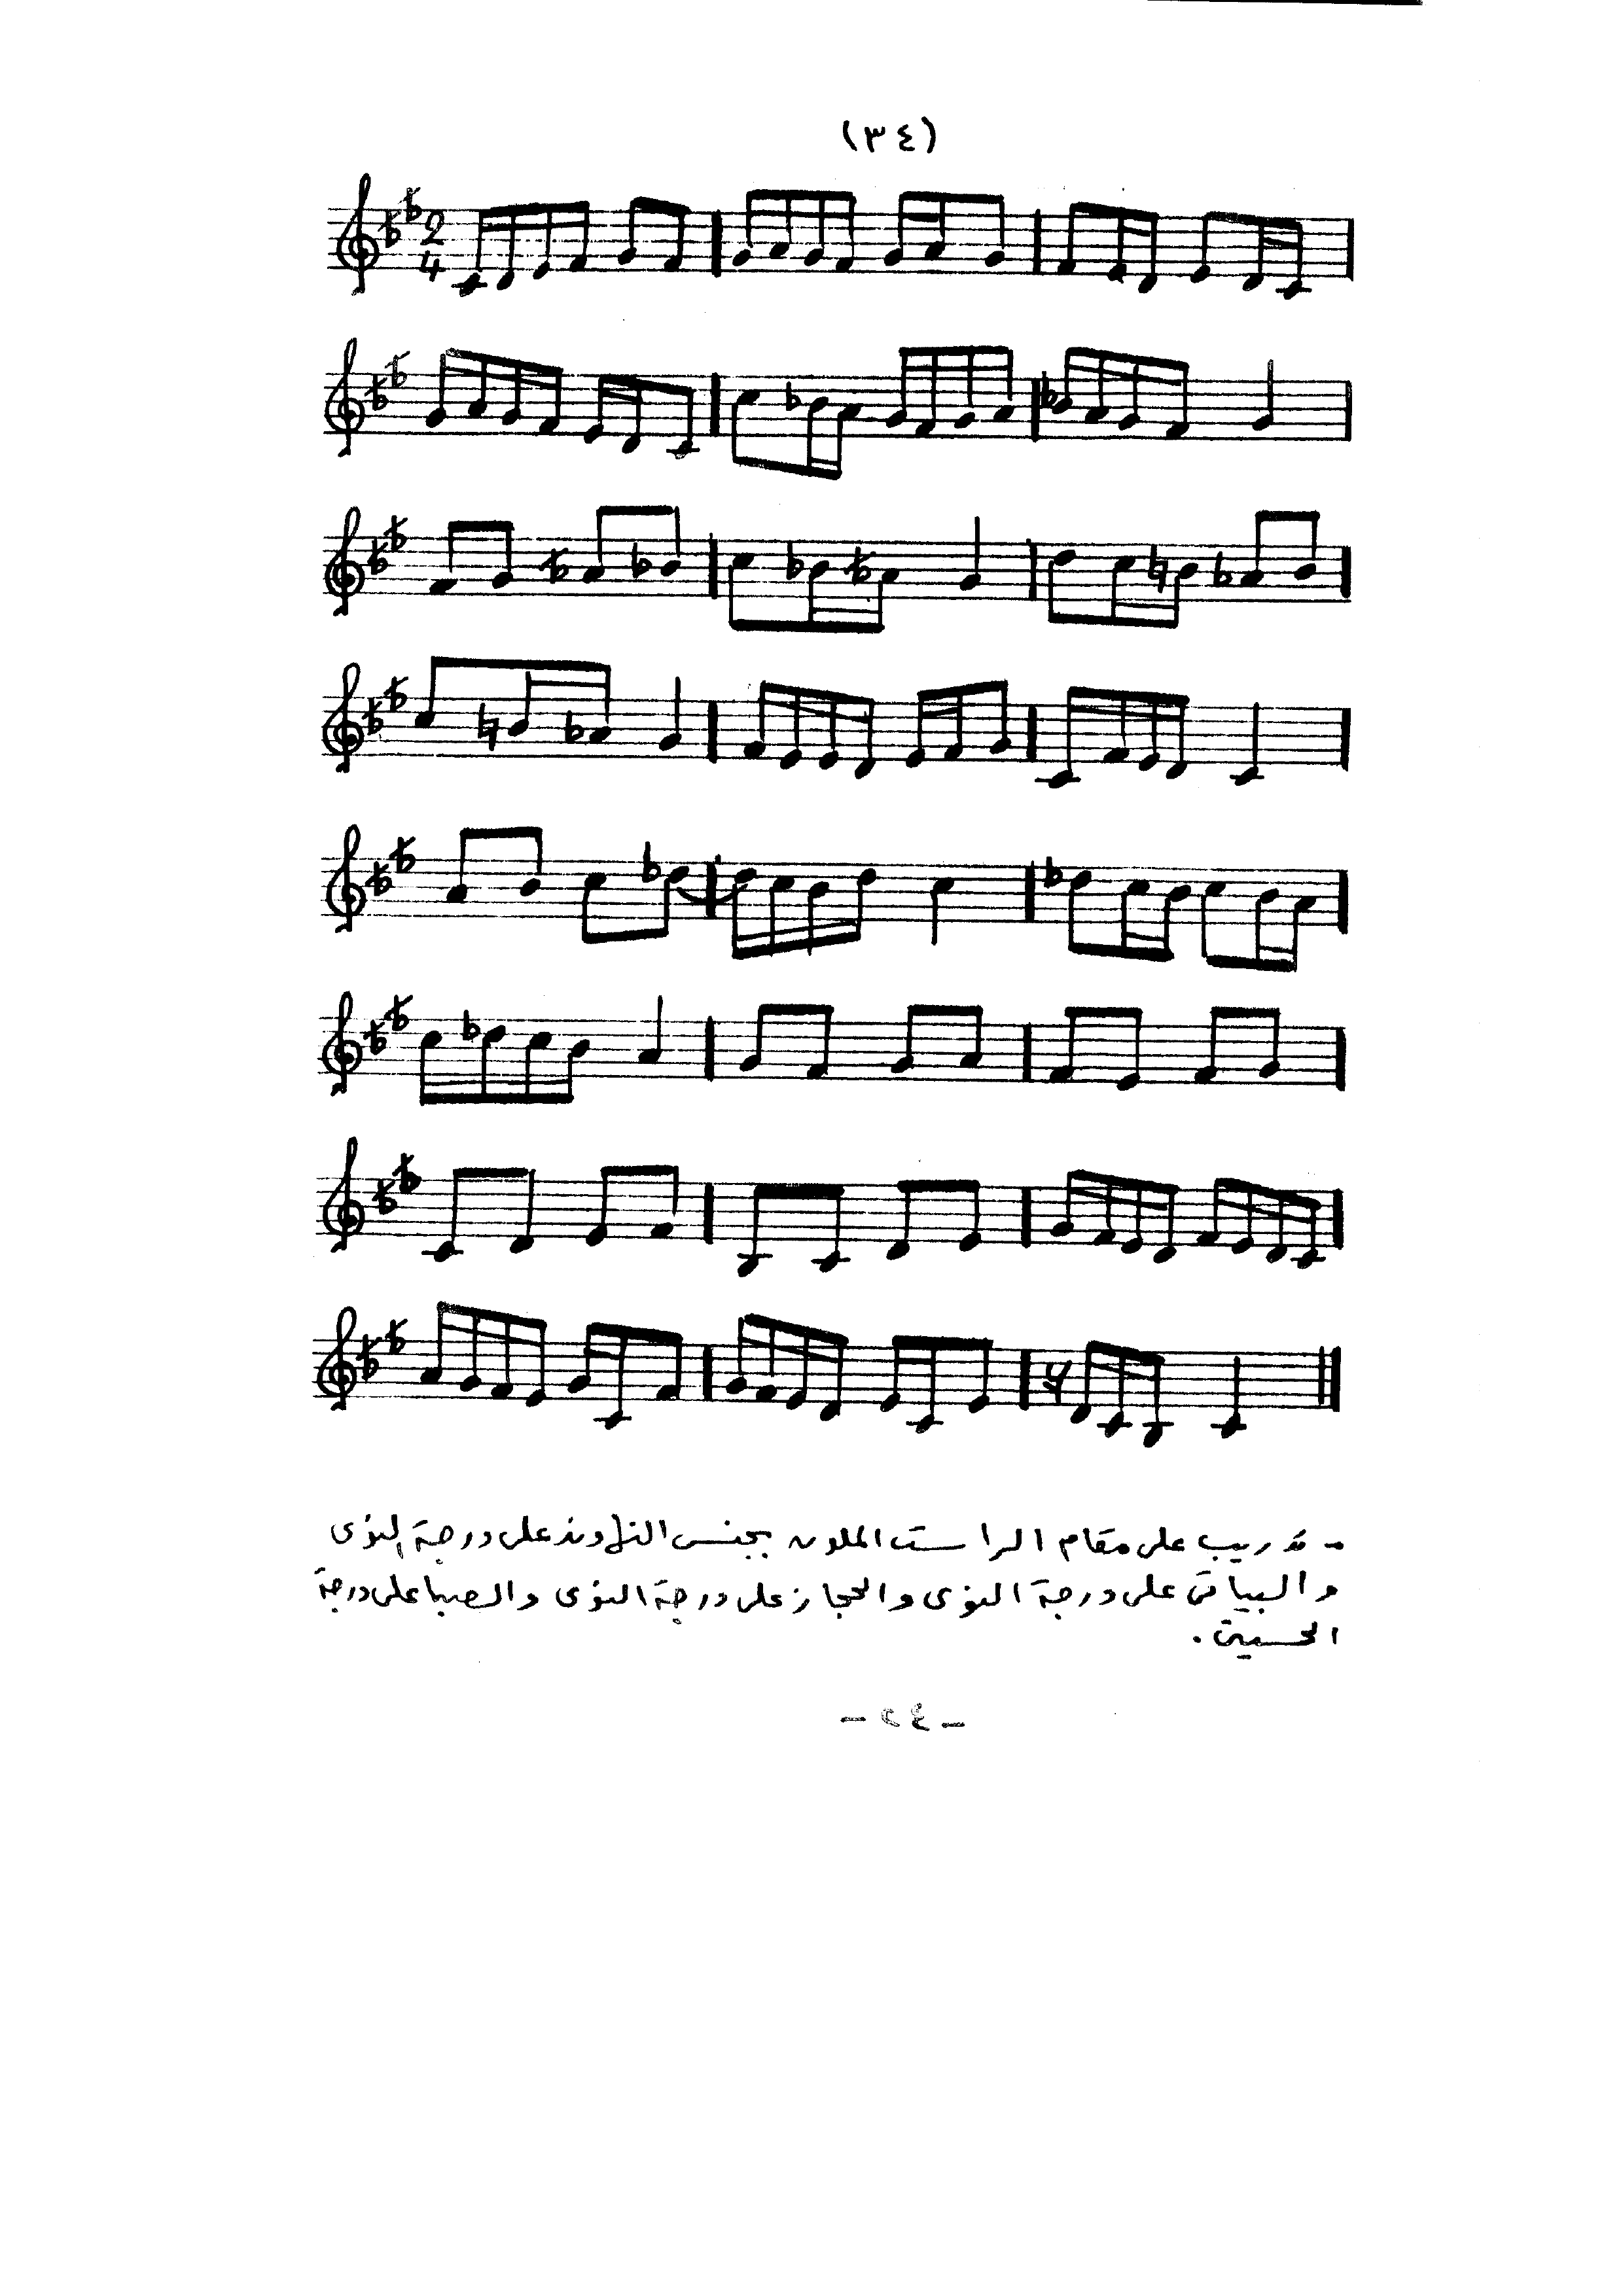 (٣٤)
2
4
- تدريب على مقام الراست الملون بجنس النهاوند على درجة النوى
والبياتى على درجة النوى والحجاز على درجة النوى والصبا على درجة
الحسينى .
- ٢٤ -